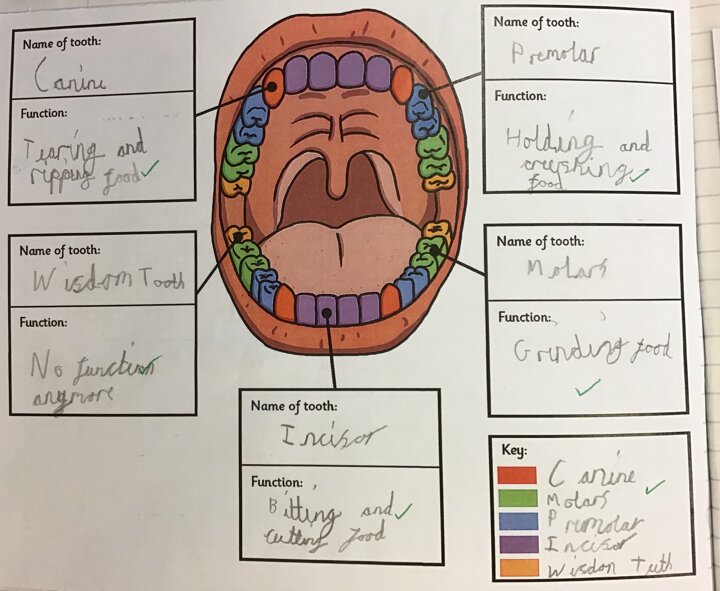 Name of tooth:
Canine
Function:
Tearing and
ripping food
Name of tooth:
Premolar
Function:
Holding and
creushing
food
Name of tooth:
Wisdom Tooth
Function:
No function
anymore
Name of tooth:
Molars
Function:
Grinding food
Name of tooth:
Incisor
Function:
Bitting and
cutting food
Key:
Canine
Molars
Premolar
Incisor
Wisdon Tuth